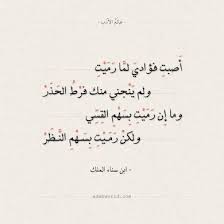 عالم الأدب
أصبتِ فؤاديَ لمَّا رَمَيْتِ
ولم يَنْجني منك فرْطُ الحَذَرْ
وما إن رَمَيْتِ بسَهْمِ القِسِيّ
ولكنْ رَمَيْتِ بسَهْمِ النَّظَرْ
- ابن سناء الملك -
adabworld.com